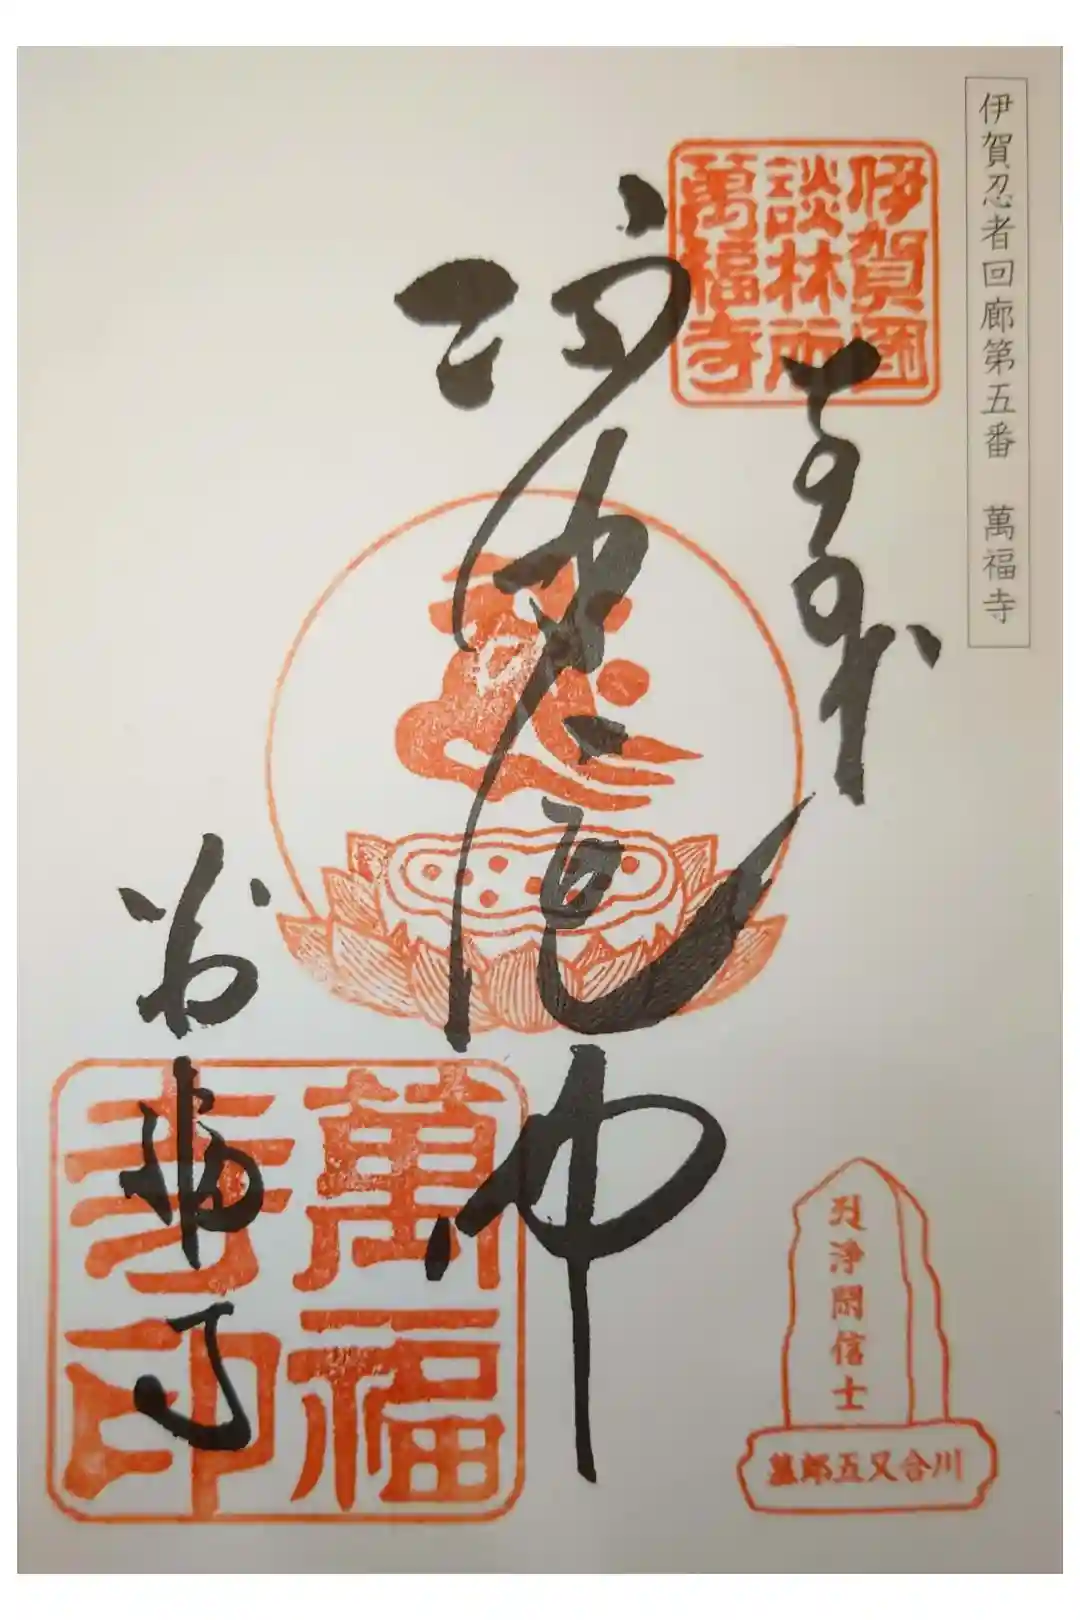 伊賀忍者回廊第五番 萬福寺
伊賀國
談林所
萬福寺
奉拝
萬福寺
萬福
寺印
浄信士
川合又五郎墓